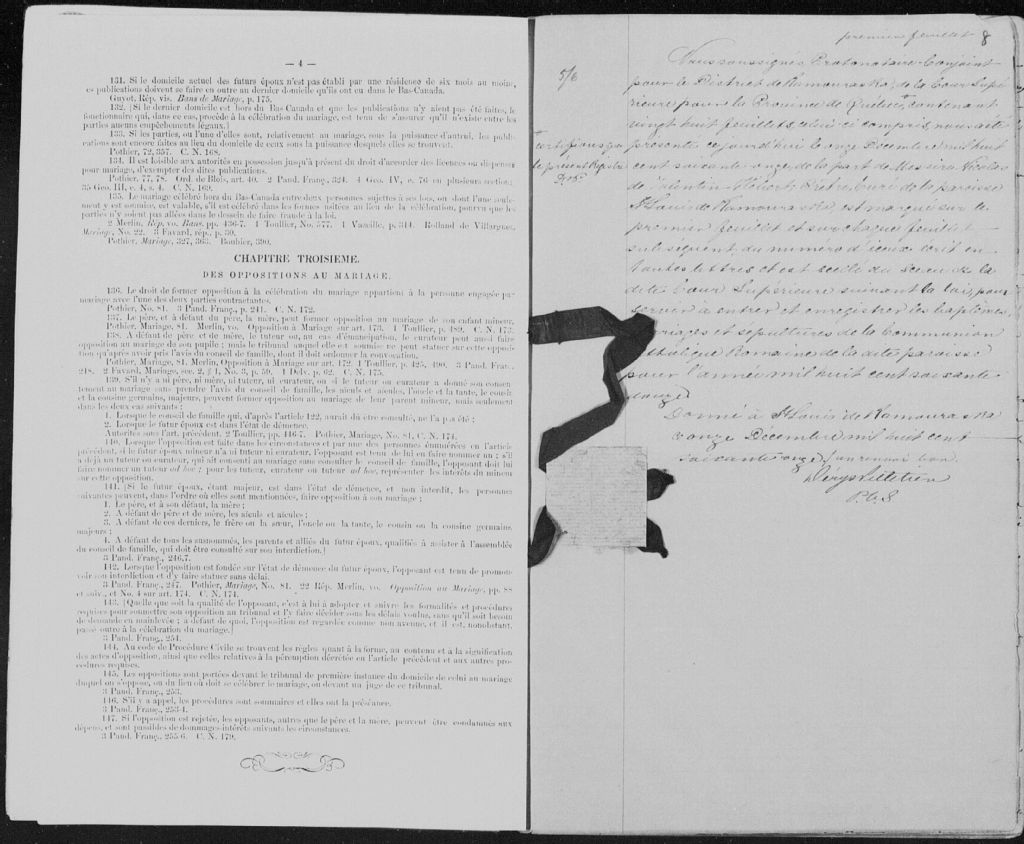 — 4 —
131. Si le domicile actuel des futurs époux n'est pas établi par une résidence de six mois au moins,
ces publications doivent se faire en outre au dernier domicile qu'ils ont eu dans le Bas-Canada.
Guyot, Rép. vis. Bans de Mariage, p. 175.
132. [Si le dernier domicile est hors du Bas-Canada et que les publications n'y aient pas été faites, le
fonctionnaire qui, dans ce cas, procède à la célébration du mariage, est tenu de s'assurer qu'il n'existe entre les
parties aucuns empêchements légaux.]
133. Si les parties, ou l'une d'elles sont, relativement au mariage, sous la puissance d'autrui, les publi-
cations sont encore faites au lieu du domicile de ceux sous la puissance desquels elles se trouvent.
Pothier, 72, 357. C. N. 168.
134. Il est loisible aux autorités en possession jusqu'à présent du droit d'accorder des licences ou dispenses
pour mariage, d'exempter des dites publications.
Pothier, 77, 78. Ord. de Blois, art. 40. 2 Pand. Franç., 324. 4 Geo. IV, c. 76 en plusieurs section;
35 Geo. III, c. 4, s. 4. C. N. 169.
135. Le mariage célébré hors du Bas-Canada entre deux personnes sujettes à ses lois, ou dont l'une seule-
ment y est soumise, est valable, s'il est célébré dans les formes usitées au lieu de la célébration, pourvu que les
parties n'y soient pas allées dans le dessein de faire fraude à la loi.
2 Merlin, Rép. vo. Bans, pp. 436-7. 1 Toullier, No. 577. 1 Vazeille, p. 314. Rolland de Villargues,
Mariage, No. 22. 3 Favard, rép., p. 30.
Pothier, Mariage, 327, 363. Bouhier, 390.
CHAPITRE TROISIEME.
DES OPPOSITIONS AU MARIAGE.
136. Le droit de former opposition à la célébration du mariage appartient à la personne engagée par
mariage avec l'une des deux parties contractantes.
Pothier, No. 81. 3 Pand. Franç., p. 241. C. N. 172.
137. Le père, et à défaut du père, la mère, peut former opposition au mariage de son enfant mineur.
Pothier, Mariage, 81. Merlin, vo. Opposition à Mariage sur art. 173. 1 Toullier, p. 489. C. N. 173.
138. A défaut de père et de mère, le tuteur ou, au cas d'émancipation, le curateur peut aussi faire
opposition au mariage de son pupille; mais le tribunal auquel elle est soumise ne peut statuer sur cette opposi-
tion qu'après avoir pris l'avis du conseil de famille, dont il doit ordonner la convocation.
Pothier, Mariage, 81. Merlin, Opposition à Mariage sur art. 172. 1 Toullier, p. 425, 490. 3 Pand. Fran.,
248. 2 Favard, Mariage, sec. 2, § 1, No. 3, p. 59. 1 Delv., p. 62. C. N. 175.
139. S'il n'y a ni père, ni mère, ni tuteur, ni curateur, ou si le tuteur ou curateur a donné son consen-
tement au mariage sans prendre l'avis du conseil de famille, les aïeuls et aïeules, l'oncle et la tante, le cousin
et la cousine germains, majeurs, peuvent former opposition au mariage de leur parent mineur, mais seulement
dans les deux cas suivants :
1. Lorsque le conseil de famille qui, d'après l'article 122, aurait dû être consulté, ne l'a pas été;
2. Lorsque le futur époux est dans l'état de démence.
Autorités sous l'art. précédent. 2 Toullier, pp. 416-7. Pothier, Mariage, No. 81. C. N. 174.
140. Lorsque l'opposition est faite dans les circonstances et par une des personnes énumérées en l'article
précédent, si le futur époux mineur n'a ni tuteur ni curateur, l'opposant est tenu de lui en faire nommer un ; s'il
a déjà un tuteur ou curateur, qui ait consenti au mariage sans consulter le conseil de famille, l'opposant doit lui
faire nommer un tuteur ad hoc ; pour les tuteur, curateur ou tuteur ad hoc, représenter les intérêts du mineur
sur cette opposition.
141. [Si le futur époux, étant majeur, est dans l'état de démence, et non interdit, les personnes
suivantes peuvent, dans l'ordre où elles sont mentionnées, faire opposition à son mariage ;
1. Le père, et à son défaut, la mère ;
2. A défaut de père et de mère, les aïeuls et aïeules ;
3. A défaut de ces derniers, le frère ou la sœur, l'oncle ou la tante, le cousin ou la cousine germains,
majeurs ;
4. A défaut de tous les susnommés, les parents et alliés du futur époux, qualifiés à assister à l'assemblée
du conseil de famille, qui doit être consulté sur son interdiction.]
3 Pand. Franç., 246,7.
142. Lorsque l'opposition est fondée sur l'état de démence du futur époux, l'opposant est tenu de promou-
voir son interdiction et d'y faire statuer sans délai.
3 Pand. Franç., 247. Pothier, Mariage, No. 81. 22 Rép. Merlin, vo. Opposition au Mariage, pp. 88
et suiv., et No. 4 sur art. 174. C. N. 174.
143. [Quelle que soit la qualité de l'opposant, c'est à lui à adopter et suivre les formalités et procédures
requises pour soumettre son opposition au tribunal et l'y faire décider sous les délais voulus, sans qu'il soit besoin
de demande en mainlevée ; à défaut de quoi, l'opposition est regardée comme non avenue, et il est, nonobstant,
passé outre à la célébration du mariage.]
3 Pand. Franç., 251.
144. Au code de Procédure Civile se trouvent les règles quant à la forme, au contenu et à la signification
des actes d'opposition, ainsi que celles relatives à la péremption décrétée en l'article précédent et aux autres pro-
cédures requises.
145. Les oppositions sont portées devant le tribunal de première instance du domicile de celui au mariage
duquel on s'oppose, ou du lieu où doit se célébrer le mariage, ou devant un juge de ce tribunal.
3 Pand. Franç., 253.
146. S'il y a appel, les procédures sont sommaires et elles ont la préséance.
3 Pand. Franç., 253-4.
147. Si l'opposition est rejetée, les opposants, autres que le père et la mère, peuvent être condamnés aux
dépens, et sont passibles de dommages-intérêts suivants les circonstances.
3 Pand. Franç., 255-6. C. N. 179.
premier feuillet 8
Nous soussignés Protonotaire Conjoint
pour le District de Kamouraska, de la Cour Supé-
rieure pour la Province de Québec, contenant
vingt huit feuillets, celui-ci compris, nous a été
présenté ce jourd'hui le onze Décembre mil huit
cent soixante-onze, de la part de Messire Nicolas
de Tolentin Hébert, Prêtre, Curé de la paroisse
St Louis de Kamouraska, est marqué sur le
premier feuillet et sur chaque feuillet
subséquent, du numéro d'iceux écrit en
toutes lettres et est scellé du Sceau de la
dite Cour Supérieure suivant la loi, pour
servir à entrer et enregistrer les baptêmes,
mariages et sépultures de la Communion
Catholique Romaine de la dite paroisse
pour l'année mil huit cent soixante
douze
Donné à St Louis de Kamouraska
ce onze Décembre mil huit cent
soixante onze
P.C.S.
5/6
certifions que
le présent Registre